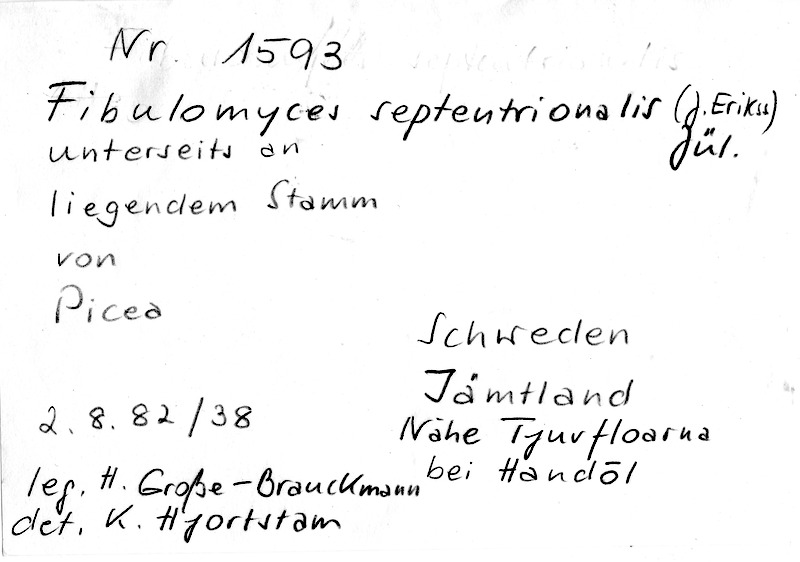 Nr. 1593
Fibulomyces septentrionalis (J. Erikss)
Jül.
unterseits an
liegendem Stamm
von
Picea
Schweden
Jämtland
Nähe Tjurfloarna
bei Handöl
2. 8. 82 / 38
leg. H. Große-Brauckmann
det. K. Hjortstam